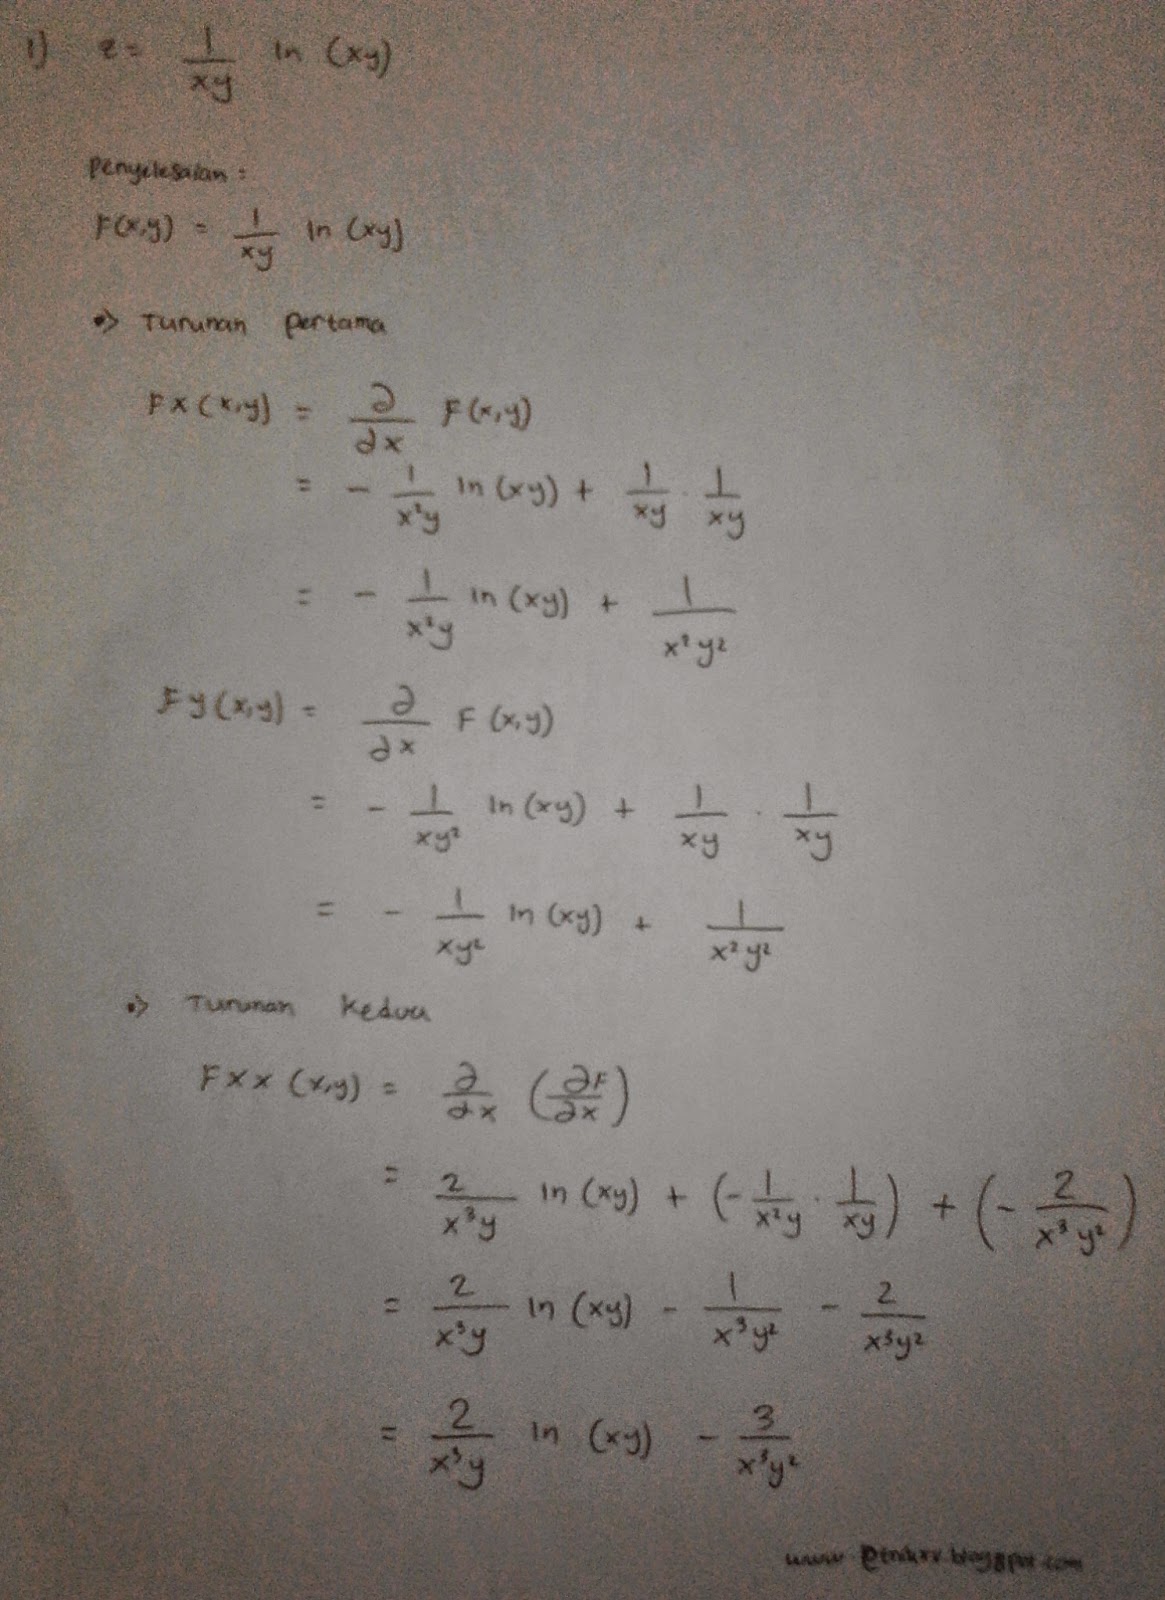 1) z = 1/xy ln (xy)
Penyelesaian :
F(x,y) = 1/xy ln (xy)
•> Turunan pertama
Fx (x,y) = ∂/∂x F(x,y)
= - 1/x²y ln (xy) + 1/xy . 1/xy
= - 1/x²y ln (xy) + 1/x²y²
Fy (x,y) = ∂/∂x F (x,y)
= - 1/xy² ln (xy) + 1/xy . 1/xy
= - 1/xy² ln (xy) + 1/x²y²
•> Turunan Kedua
Fxx (x,y) = ∂/∂x (∂F/∂x)
= 2/x³y ln (xy) + (- 1/x²y . 1/xy) + (- 2/x³y²)
= 2/x³y ln (xy) - 1/x³y² - 2/x³y²
= 2/x³y ln (xy) - 3/x³y²